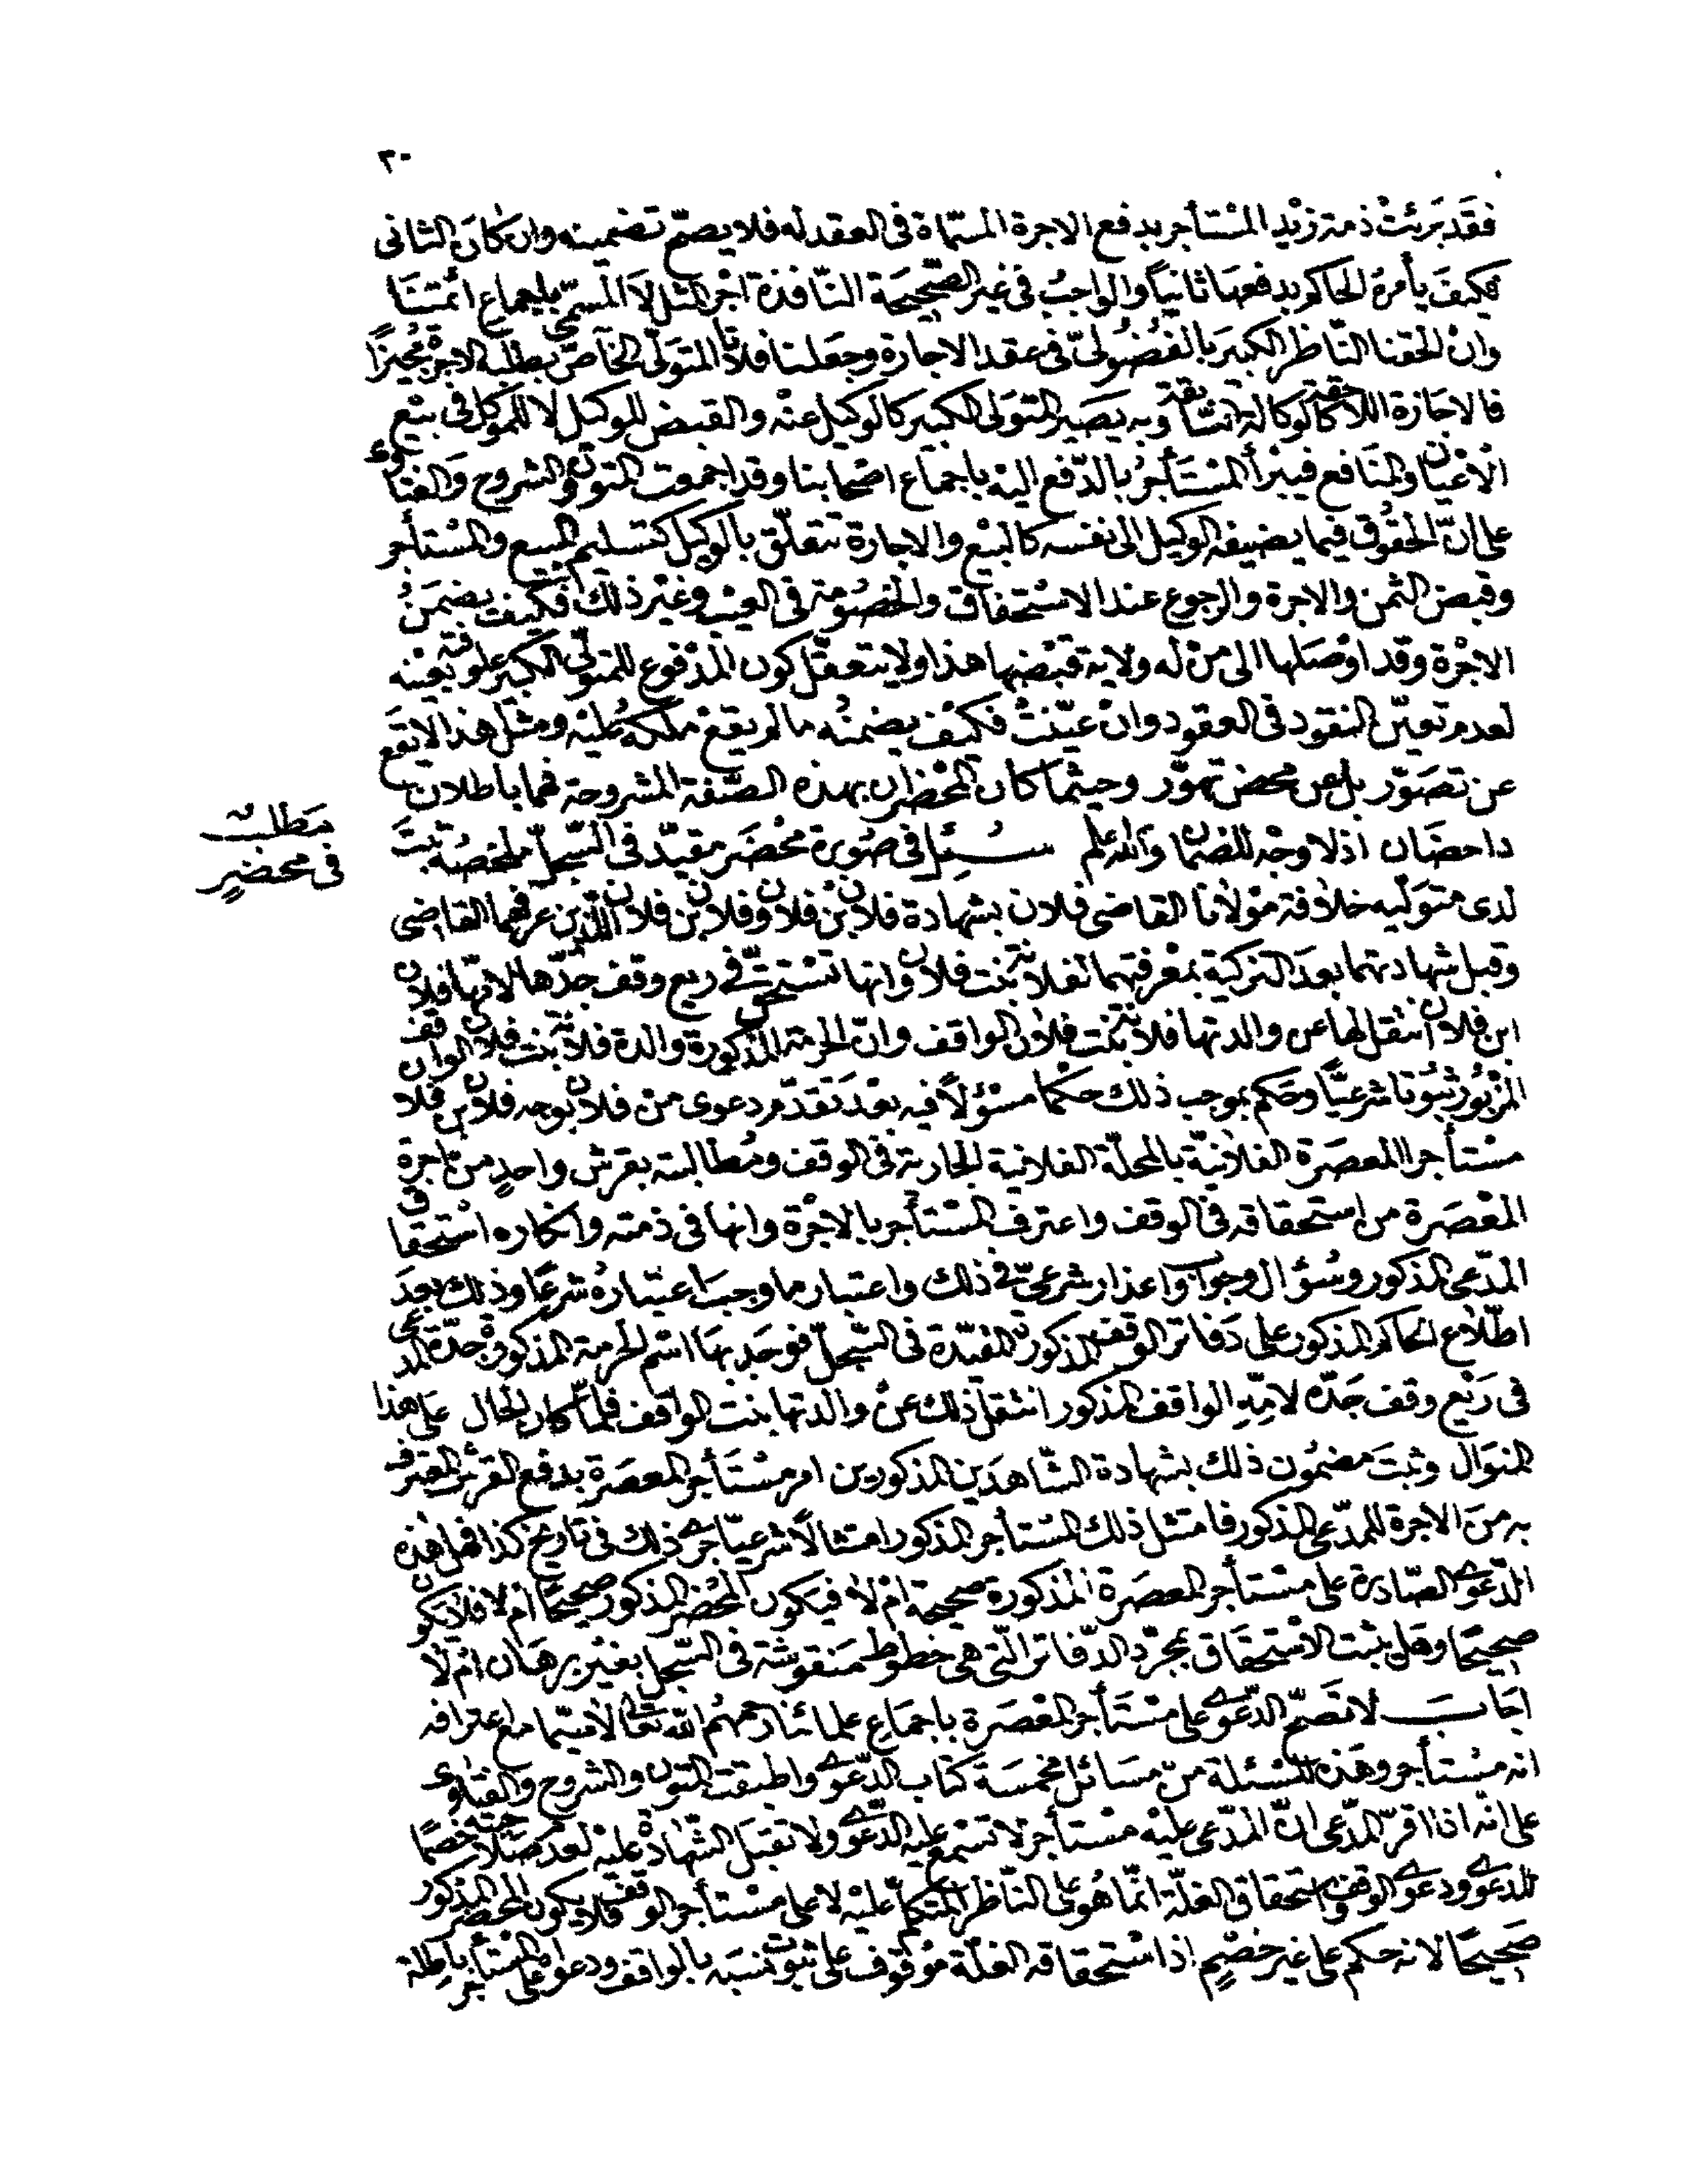 ٣٠
فقد برئت ذمة زيد المستأجر بدفع الاجرة المسماة فى العقد له فلا يصح تضمينه وان كان الثانى
فكيف يأمره الحاكم بدفعها ثانيا والواجب فى غير الصحيحة النافذة اجر المثل لا المسمى باجماع ائمتنا
وان الحقنا الناظر الكبير بالفضولى فى عقد الاجارة وجعلنا فلانا المتولى الخاص بطلبه الاجرة مجيزا
فالاجازة اللاحقة كالوكالة السابقة وبه يصير المتولى الكبير كالوكيل عنه والقبض للوكيل لا للموكل فى بيع
الاعيان والمنافع فيبرأ المستأجر بالدفع اليه باجماع اصحابنا وقد اجمعت المتون والشروح والفتاوى
على ان الحقوق فيما يضيفه الوكيل الى نفسه كالبيع والاجارة تتعلق بالوكيل كتسليم المبيع والمستأجر
وقبض الثمن والاجرة والرجوع عند الاستحقاق والخصومة فى العيب وغير ذلك فكيف يضمن
الاجرة وقد اوصلها الى من له ولاية قبضها هذا ولا يتعقل كون المدفوع للمتولى الكبير علوفته بعينه
لعدم تعين النقود فى العقود وان عينت فكيف يضمنه ما لم يقع ملكه عليه ومثل هذا لا يقع
عن تصور بل عن محض تهور وحيثما كان المحضران بهذه الصفة المشروحة فهما باطلان
داحضان اذ لا وجه للضمان والله اعلم سئل فى صورة محضر مقيد فى السجل ملخصه ثبت
مطلب
فى محضر
لدى متوليه خلافة مولانا القاضى فلان بشهادة فلان بن فلان وفلان بن فلان اللذين عرفهما القاضى
وقبل شهادتهما بعد التزكية بمعرفتهما لفلانة بنت فلان وانها تستحق فى ريع وقف جدها لامها فلان
ابن فلان انتقل لها عن والدتها فلانة بنت فلان الواقف وان الحرمة المذكورة والدة فلانة بنت فلان الواقف
المزبور ثبوتا شرعيا وحكم بموجب ذلك حكما مسؤلا فيه بعد تقدم دعوى من فلان بوجه فلان بن فلان
مستأجر المعصرة الفلانية بالمحلة الفلانية الجارية فى الوقف ومطالبته بقرش واحد من اجرة
المعصرة من استحقاقه فى الوقف واعترف المستأجر بالاجرة وانها فى ذمته وانكاره استحقاق
المدعى المذكور وسؤال وجواب واعذار شرعى فى ذلك واعتبار ما وجب اعتباره شرعا وذلك بعد
اطلاع الحاكم المذكور على دفاتر الوقف المذكور المقيدة فى السجل فوجد بها اسم الحرمة المذكورة جدة المدعى
فى ريع وقف جده لامه الواقف المذكور انتقل ذلك عن والدتها بنت الواقف فلما كان الحال على هذا
المنوال وثبت مضمون ذلك بشهادة الشاهدين المذكورين امر مستأجر المعصرة بدفع القرش المعترف
به من الاجرة للمدعى المذكور فامتثل ذلك المستأجر المذكور امتثالا شرعيا جرى ذلك فى تاريخ كذا فهل هذه
الدعوى الصادرة على مستأجر المعصرة المذكورة صحيحة ام لا فيكون المحضر المذكور صحيحا ام لا فلا يكون
صحيحا وهل يثبت الاستحقاق بمجرد الدفاتر التى هى خطوط منقوشة فى السجل بغير برهان ام لا
اجاب لا تصح الدعوى على مستأجر المعصرة باجماع علمائنا رحمهم الله تعالى لا سيما مع اعترافه
انه مستأجر وهذه المسئلة من مسائل مخمسة كتاب الدعوى واطبقت المتون والشروح والفتاوى
على انه اذا اقر المدعى ان المدعى عليه مستأجر لا تسمع عليه الدعوى ولا تقبل الشهادة عليه لعدم صلاحيته خصما
للدعوى ودعوى الوقف واستحقاق الغلة انما هو على الناظر المتكلم عليه لا على مستأجر الوقف فلا يكون المحضر المذكور
صحيحا لانه حكم على غير خصم اذ استحقاقه الغلة موقوف على ثبوت نسبه بالواقف ودعواه على المستأجر باطلة